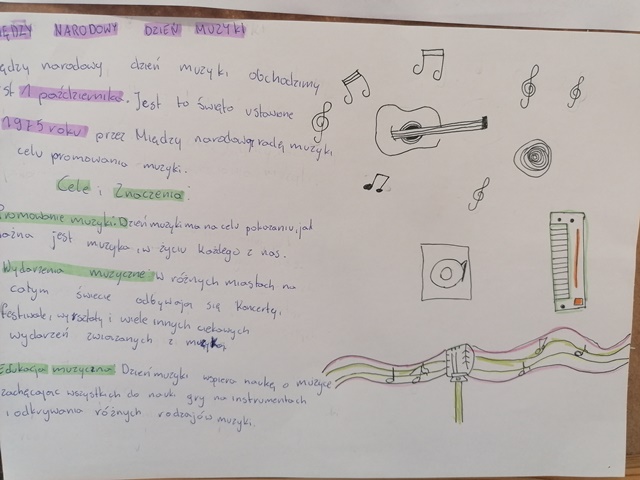 IĘDZY NARODOWY DZIEŃ MUZYKI
ędzy narodowy dzień muzyki obchodzimy
st 1 października. Jest to święto ustawone
1975 roku przez Między narodową radą muzyki
celu promowania muzyki.
Cele i Znaczenia:
Promowanie muzyki: Dzień muzyki ma na celu pokazaniu, jad
ażna jest muzyka, w życiu każdego z nas.
Wydarzenia muzyczne: W różnych miastach na
całym świecie odbywają się koncerty,
festiwale, warsztaty i wiele innych ciekawych
wydarzeń związanych z muzyką
Edukacja muzyczna Dzień muzyki wspiera naukę o muzyce
zachęcając wszystkich do nauki gry na instrumentach
i odkrywania różnych rodzajów muzyki.